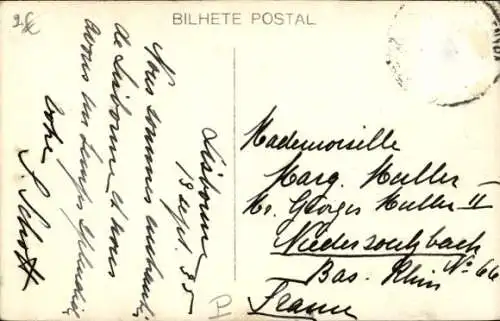 BILHETE POSTAL
Lisbonne
13 sept. 35
Nous sommes enchantés
de Lisbonne et nous
avons un temps splendide
votre
S. Schott
Mademoiselle
Marg. Muller
Mr. Georges Muller II
Niedersoultzbach
No. 66
Bas. Rhin
France